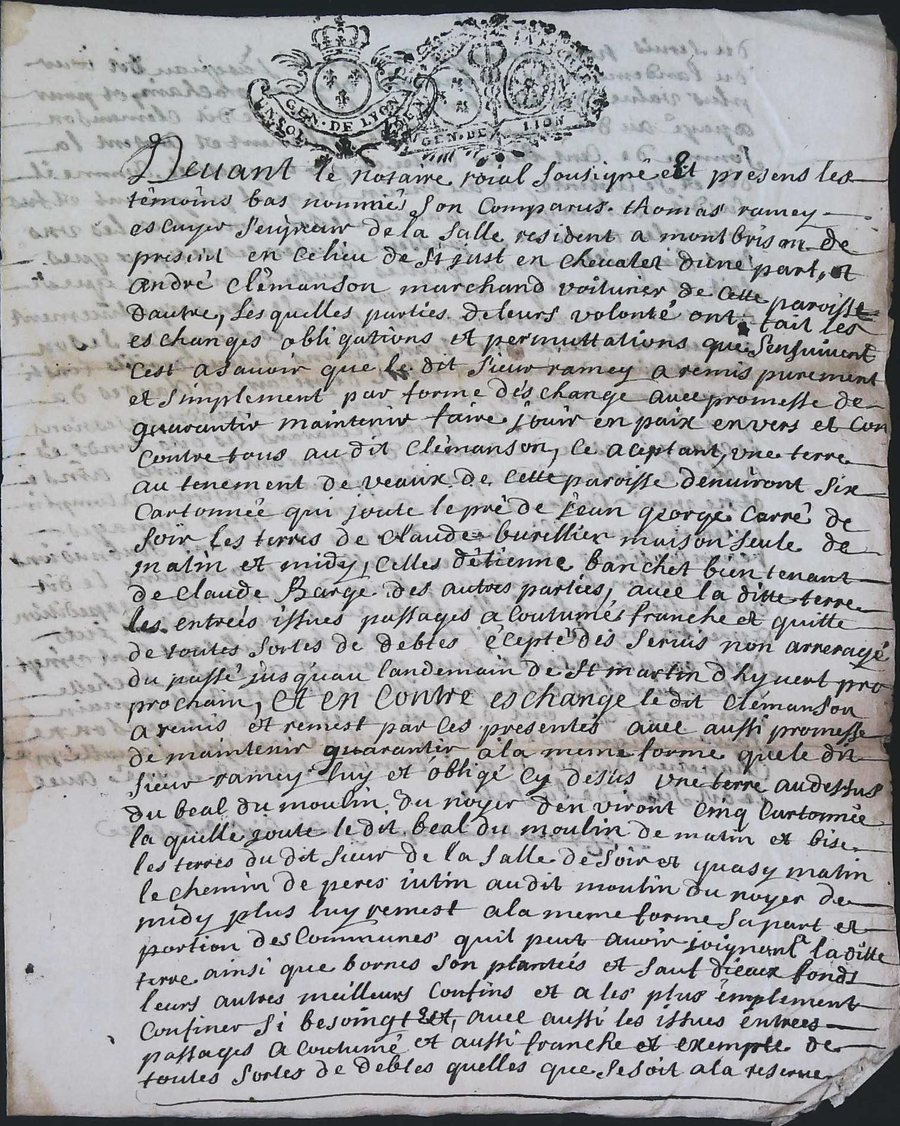 GEN. DE LYON
GEN. DE LION
Devant le notaire roial sousigné et présens les
témoins bas nommés son comparus thomas ramey
escuyer seigneur de la salle resident a montbrison de
présent en ce lieu de st just en chevalet dune part, et
andré clémanson marchand voiturier de cette paroisse
dautre, lesquelles parties de leurs volonté ont fait les
eschanges obligations et permuttations que sensuivent
cest asavoir que le dit sieur ramey a remis purement
et simplement par forme déschange avec promesse de
guarantir maintenir faire jouir en paix envers et con
contre tous audit clémanson, ce aceptant, une terre
au tenement de veaux de cette paroisse dénviront six
cartonnée qui joute le pré de jean george carré de
soir les terres de claude burellier maison seule de
matin et midy, celles détienne banchet bien tenant
de claude Barge des autres parties, avec la ditte terre
les entrées issues passages acoutumés franche et quitte
de toutes sortes de debtes éxepté des servis non arreragé
du passé jusquau landemain de st martin dhyvert pro
prochain, et en contre eschange le dit clémanson
a remis et remest par ces presentes avec aussi promesse
de maintenir guarantir a la meme forme que le dit
sieur ramey luy et obligé cy desus une terre au dessus
du beal du moulin du noyer denviront cinq cartonnée
la quelle joute le dit beal du moulin de matin et bise
les terres du dit sieur de la salle de soir et quasy matin
le chemin de peres jutin audit moulin du noyer de
midy plus luy remest a la meme forme sa part et
portion des communes quil peut avoir joignant la ditte
terre ainsi que bornes son plantées et sauf diceux fonds
leurs autres meilleurs confins et a les plus émplement
confiner si besoingt est, avec aussi les issues éntrees
passages acoutumé et aussi franche et exempte de
toutes sortes de debtes quelles que se soit a la reserve